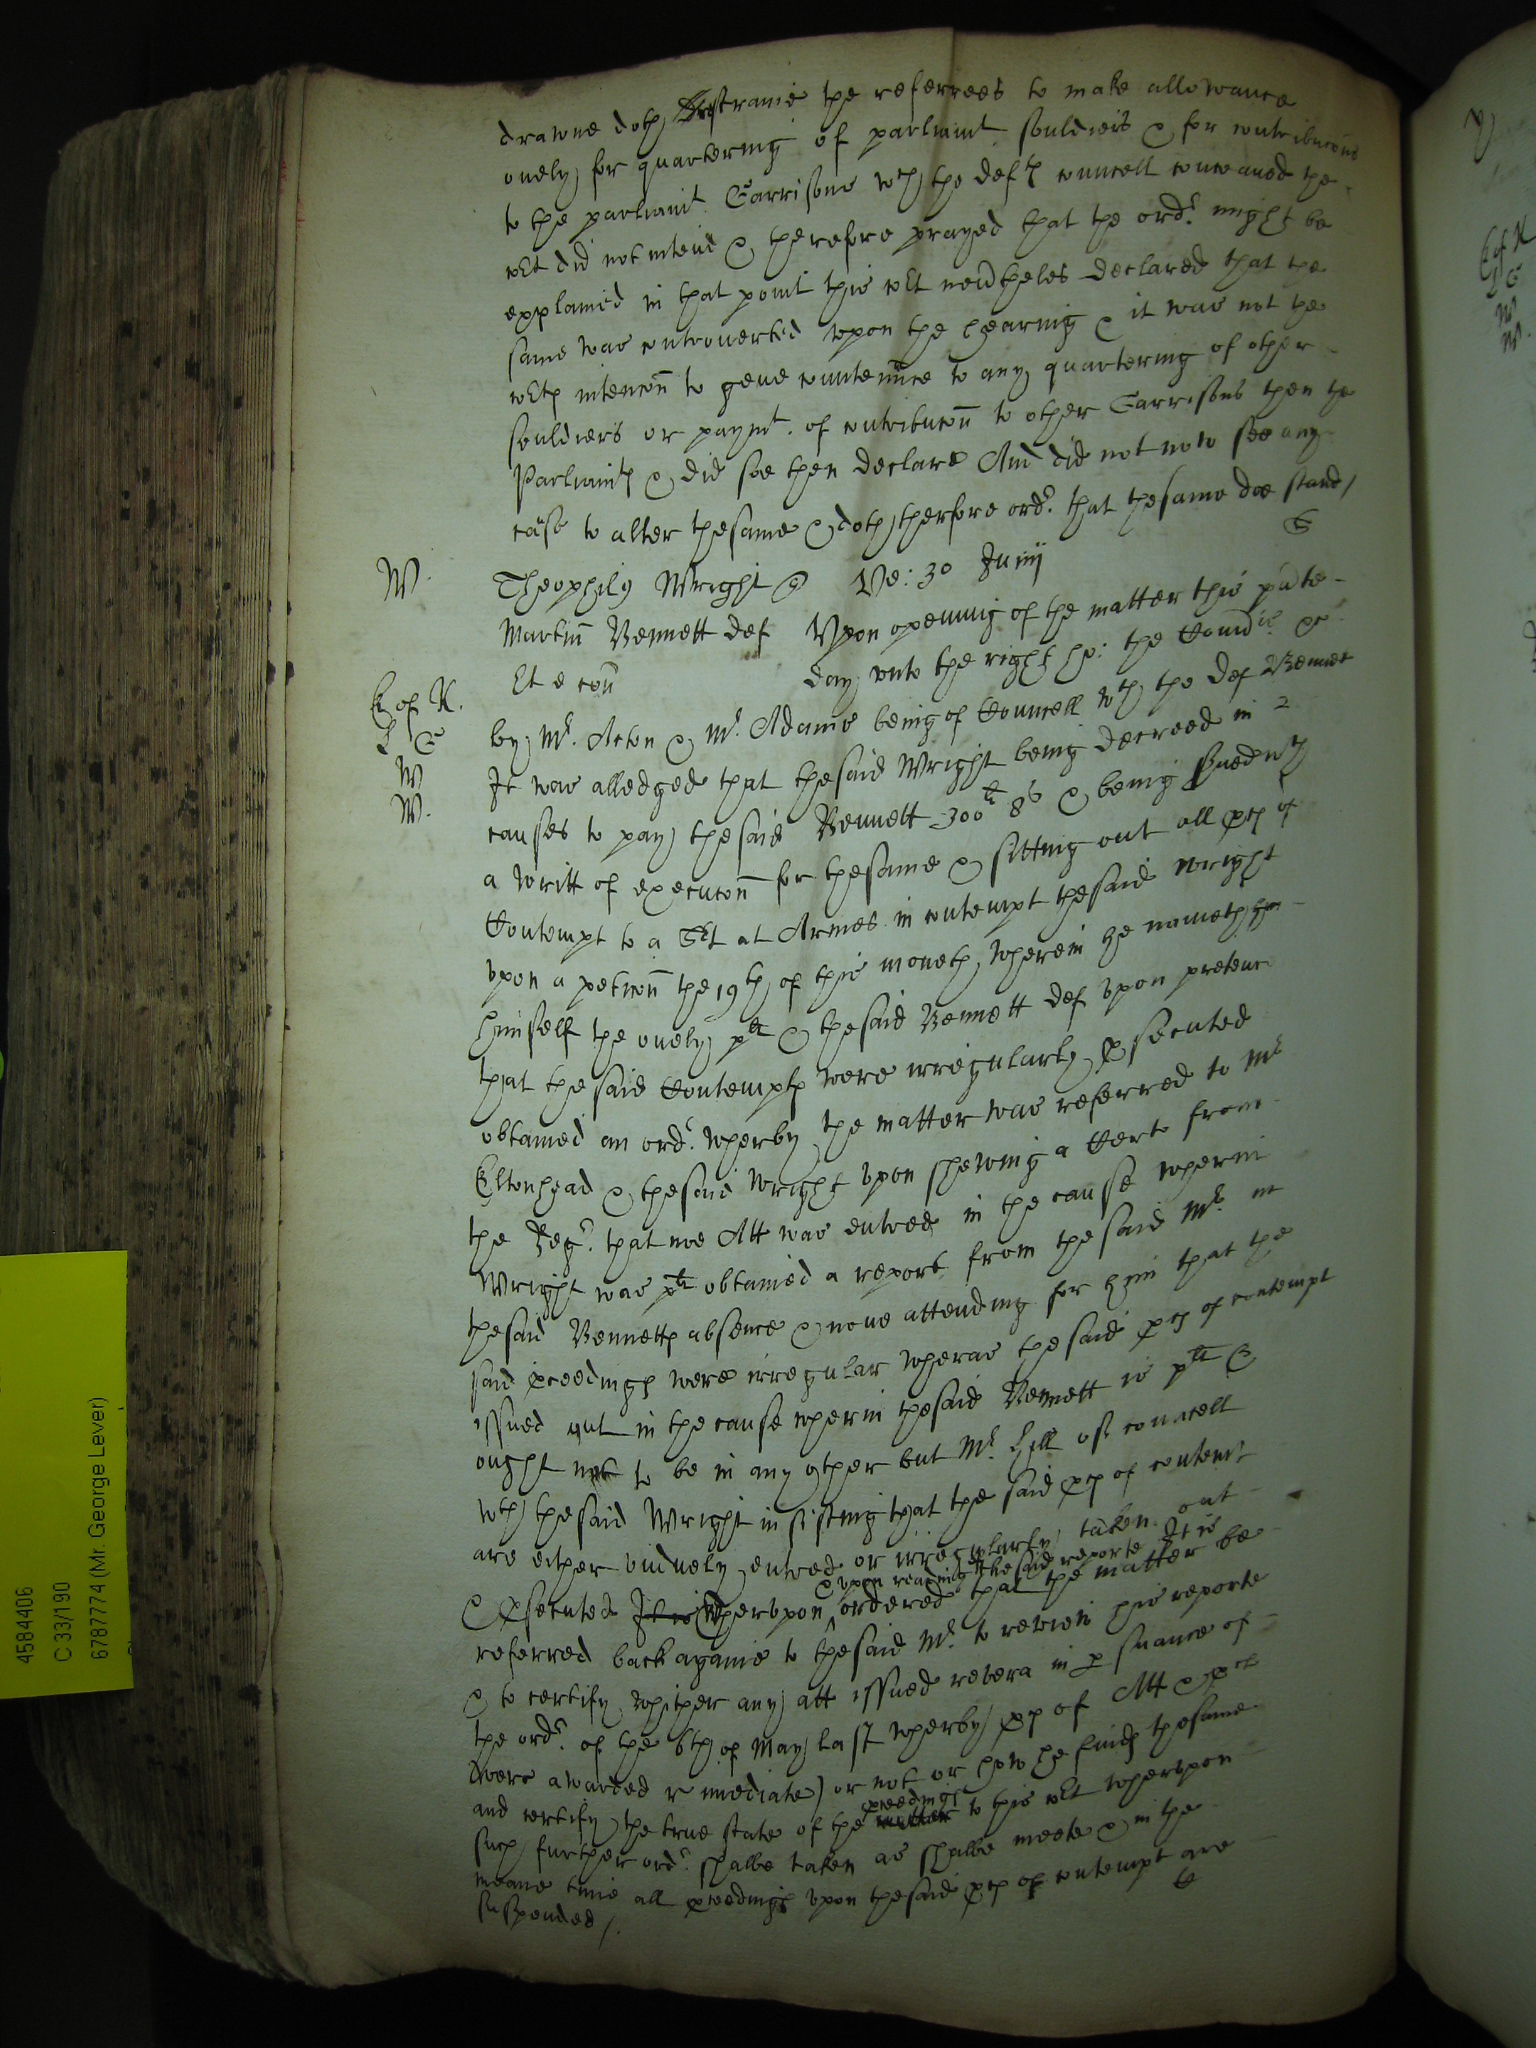 drawne doth restraine the referrees to make allowance
onely for quartering of parliamt souldiers & for contribucons
to the parliamt Garrisons wch the deftes councell conceaved the
Ct did not intend & therefore prayed that the ordr might be
explained in that point this Ct nevertheles declared that the
same was controverted upon the hearing & it was not the
Cts intencon to geve countennce to any quartering of other
souldiers or paymt of contribucon to other Garrisons then the
Parliamts & did soe then declare And did not now see any
cause to alter thesame & doth therfore ordr that thesame doe stand /
W. Theophilus Wright Ve: 30 Junij
Martin Bennett def Upon openning of the matter this pnte
Et e con day unto the right ho: the Comdrs &c
by Mr Acton & Mr Adams being of Councell wth the def Bennet
It was alledged that thesaid Wright being decreed in 2
causes to pay thesaid Bennett 300li 8s & being served wth
a writt of execucon for thesame & sitting out all pces of
Contempt to a Sjt at Armes in contempt thesaid Wright
upon a peticon the 19th of this moneth wherein he nameth
himself the onely plt & thesaid Bennett def upon pretence
that the said Contempts were irregularly psecuted
obtained an ordr wherby the matter was referred to Mr
Eltonhead & thesaid Wright upon shewing a Certe from
the Regr that noe Att was entred in the cause wherin
Wright was plt obtained a report from the said Mr in
thesaid Bennetts absence & none attending for him that the
said pceedings were irregular wheras the said pces of contempt
issued out in the cause wherin thesaid Bennett is plt &
ought not to be in any other but Mr Hill of councell
wth thesaid Wright insisting that the said pces of contempt
are either unduely entred or irregularly taken out
& upon reading the said reporte It is
& psecuted It is Wherupon ordered that the matter be
referred back againe to thesaid Mr to review his reporte
& to certify whither any att issued revera in psuance of
the ordr of the 6th of May last wherby pces of Att & pces
(were awarded immediate) or not or how he finds thesame
and certify the true state of the pceedings to this Ct wherupon
such further ordr shalbe taken as shalbe meete & in the
meane time all pceedings upon thesaid pces of contempt are
suspended /.
W
W.
4584406
C 33/190
6787774 (Mr. George Lever)